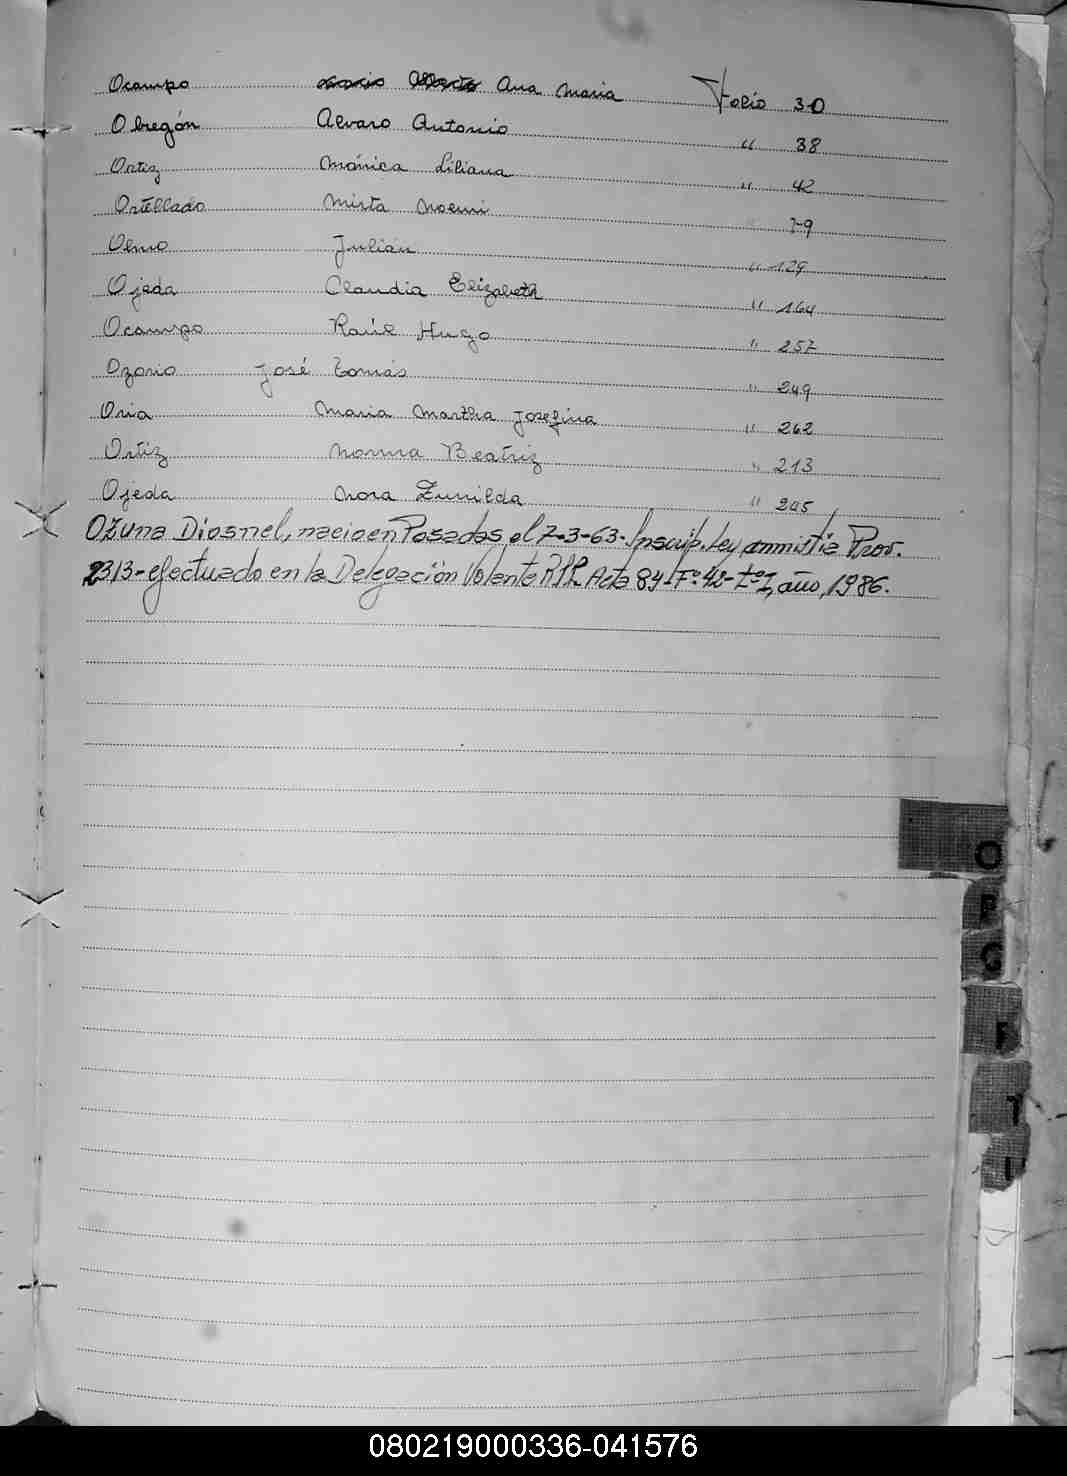 Ocampo Ana Maria Folio 30
Obregón Alvaro Antonio " 38
Ortiz Mónica Liliana " 42
Ortellado Mirta Noemi " 79
Olmo Julián " 129
Ojeda Claudia Elizabeth " 164
Ocampo Raúl Hugo " 257
Ozorio José Tomás " 249
Oria Maria Martha Josefina " 262
Ortiz Norma Beatriz " 213
Ojeda Nora Zunilda " 245
Ozuna Diosnel, nacio en Posadas el 7-3-63- Inscrip. Ley amnistia Prov.
2313- efectuado en la Delegación Volante Acta 84- Fº 42- Tº I, año, 1986.
O
P
T
080219000336-041576